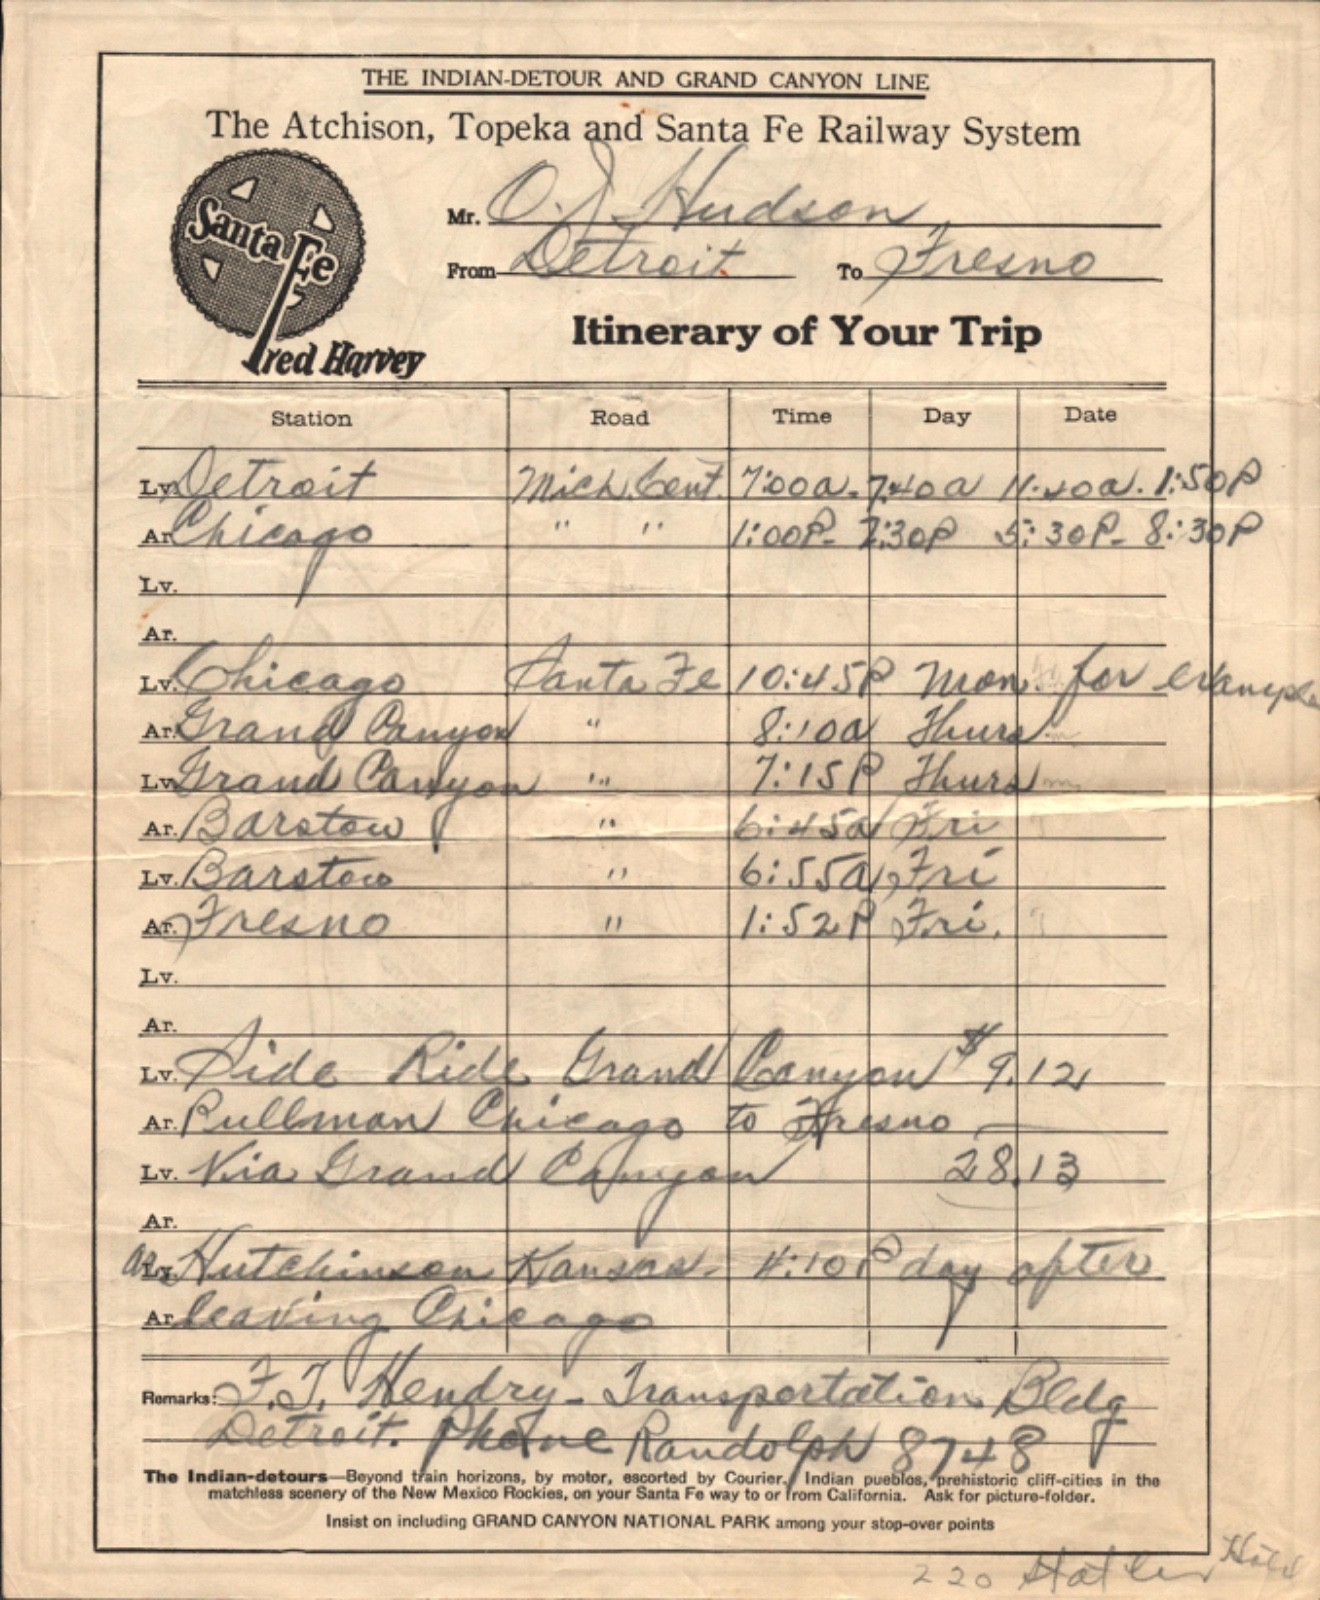 THE INDIAN-DETOUR AND GRAND CANYON LINE
The Atchison, Topeka and Santa Fe Railway System
Santa Fe
Fred Harvey
Mr. O. J. Hudson
From Detroit To Fresno
Itinerary of Your Trip
Station Road Time Day Date
Lv. Detroit Mich. Cent. 7:00a. 7:40a 11:40a. 1:50P
Ar. Chicago " " 1:00P- 2:30P 5:30P- 8:30P
Lv.
Ar.
Lv. Chicago Santa Fe 10:45P Mon. for example
Ar. Grand Canyon " 8:10a Thurs.
Lv. Grand Canyon " 7:15P Thurs
Ar. Barstow " 6:45a Fri
Lv. Barstow " 6:55a, Fri
Ar. Fresno " 1:52P Fri.
Lv.
Ar.
Lv. Side Ride Grand Canyon $9.12
Ar. Pullman Chicago to Fresno
Lv. Via Grand Canyon 28.13
Ar.
Ar. Lv. Hutchinson Kansas. 4:10P day after
Ar. leaving Chicago
Remarks: F. T. Hendry - Transportation Bldg
Detroit. Phone Randolph 8748
The Indian-detours—Beyond train horizons, by motor, escorted by Courier. Indian pueblos, prehistoric cliff-cities in the
matchless scenery of the New Mexico Rockies, on your Santa Fe way to or from California. Ask for picture-folder.
Insist on including GRAND CANYON NATIONAL PARK among your stop-over points
220 Hotel